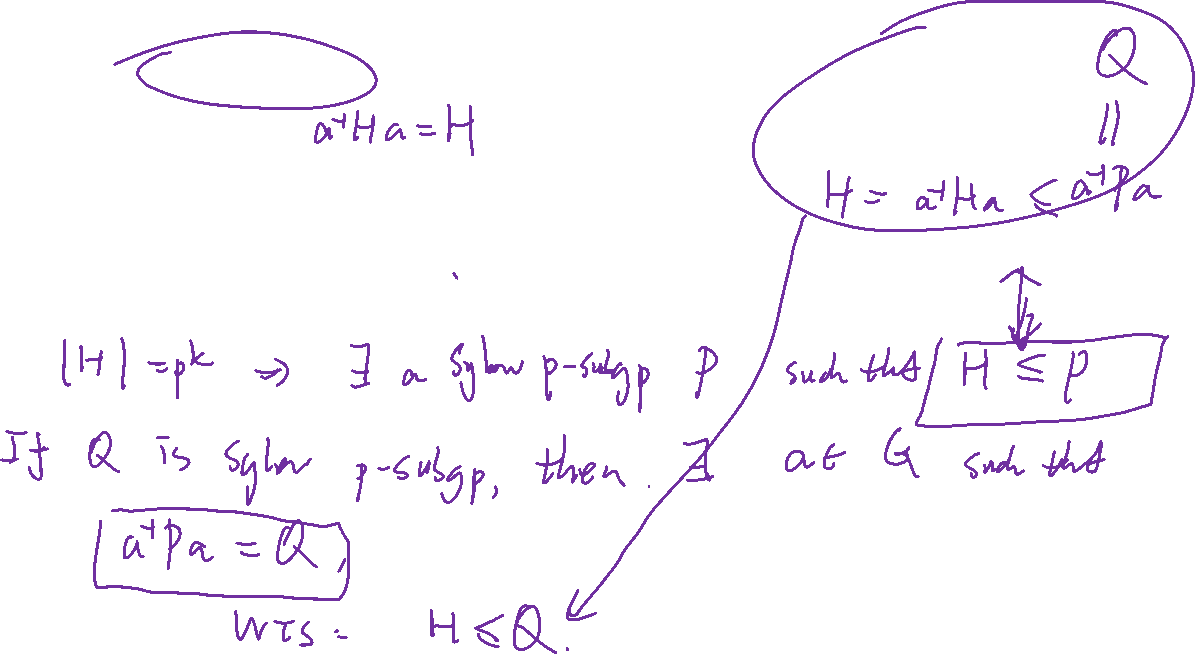 a⁻¹Ha = H
Q
||
H = a⁻¹Ha ≤ a⁻¹Pa
|H| = pᵏ ⇒ ∃ a Sylow p-subgp P such that H ≤ P
If Q is Sylow p-subgp, then ∃ a ∈ G such that
a⁻¹Pa = Q,
WTS: H ≤ Q.